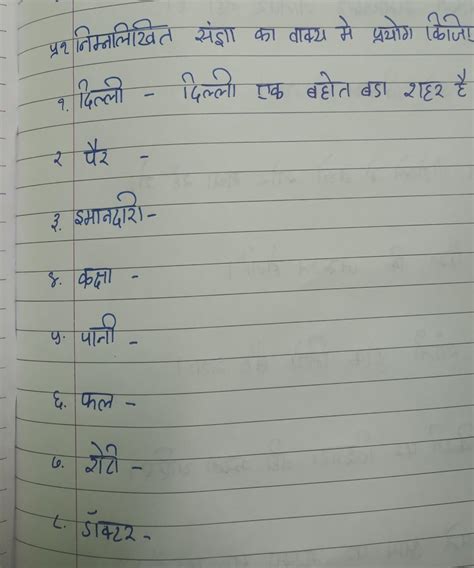 प्र१ निम्नलिखित संज्ञा का वाक्य मे प्रयोग किजिए
१. दिल्ली - दिल्ली एक बहोत बडा शहर है
२ पैर -
३. इमानदारी -
४. कक्षा -
५. पानी -
६. फल -
७. रोटी -
८. डॉक्टर -